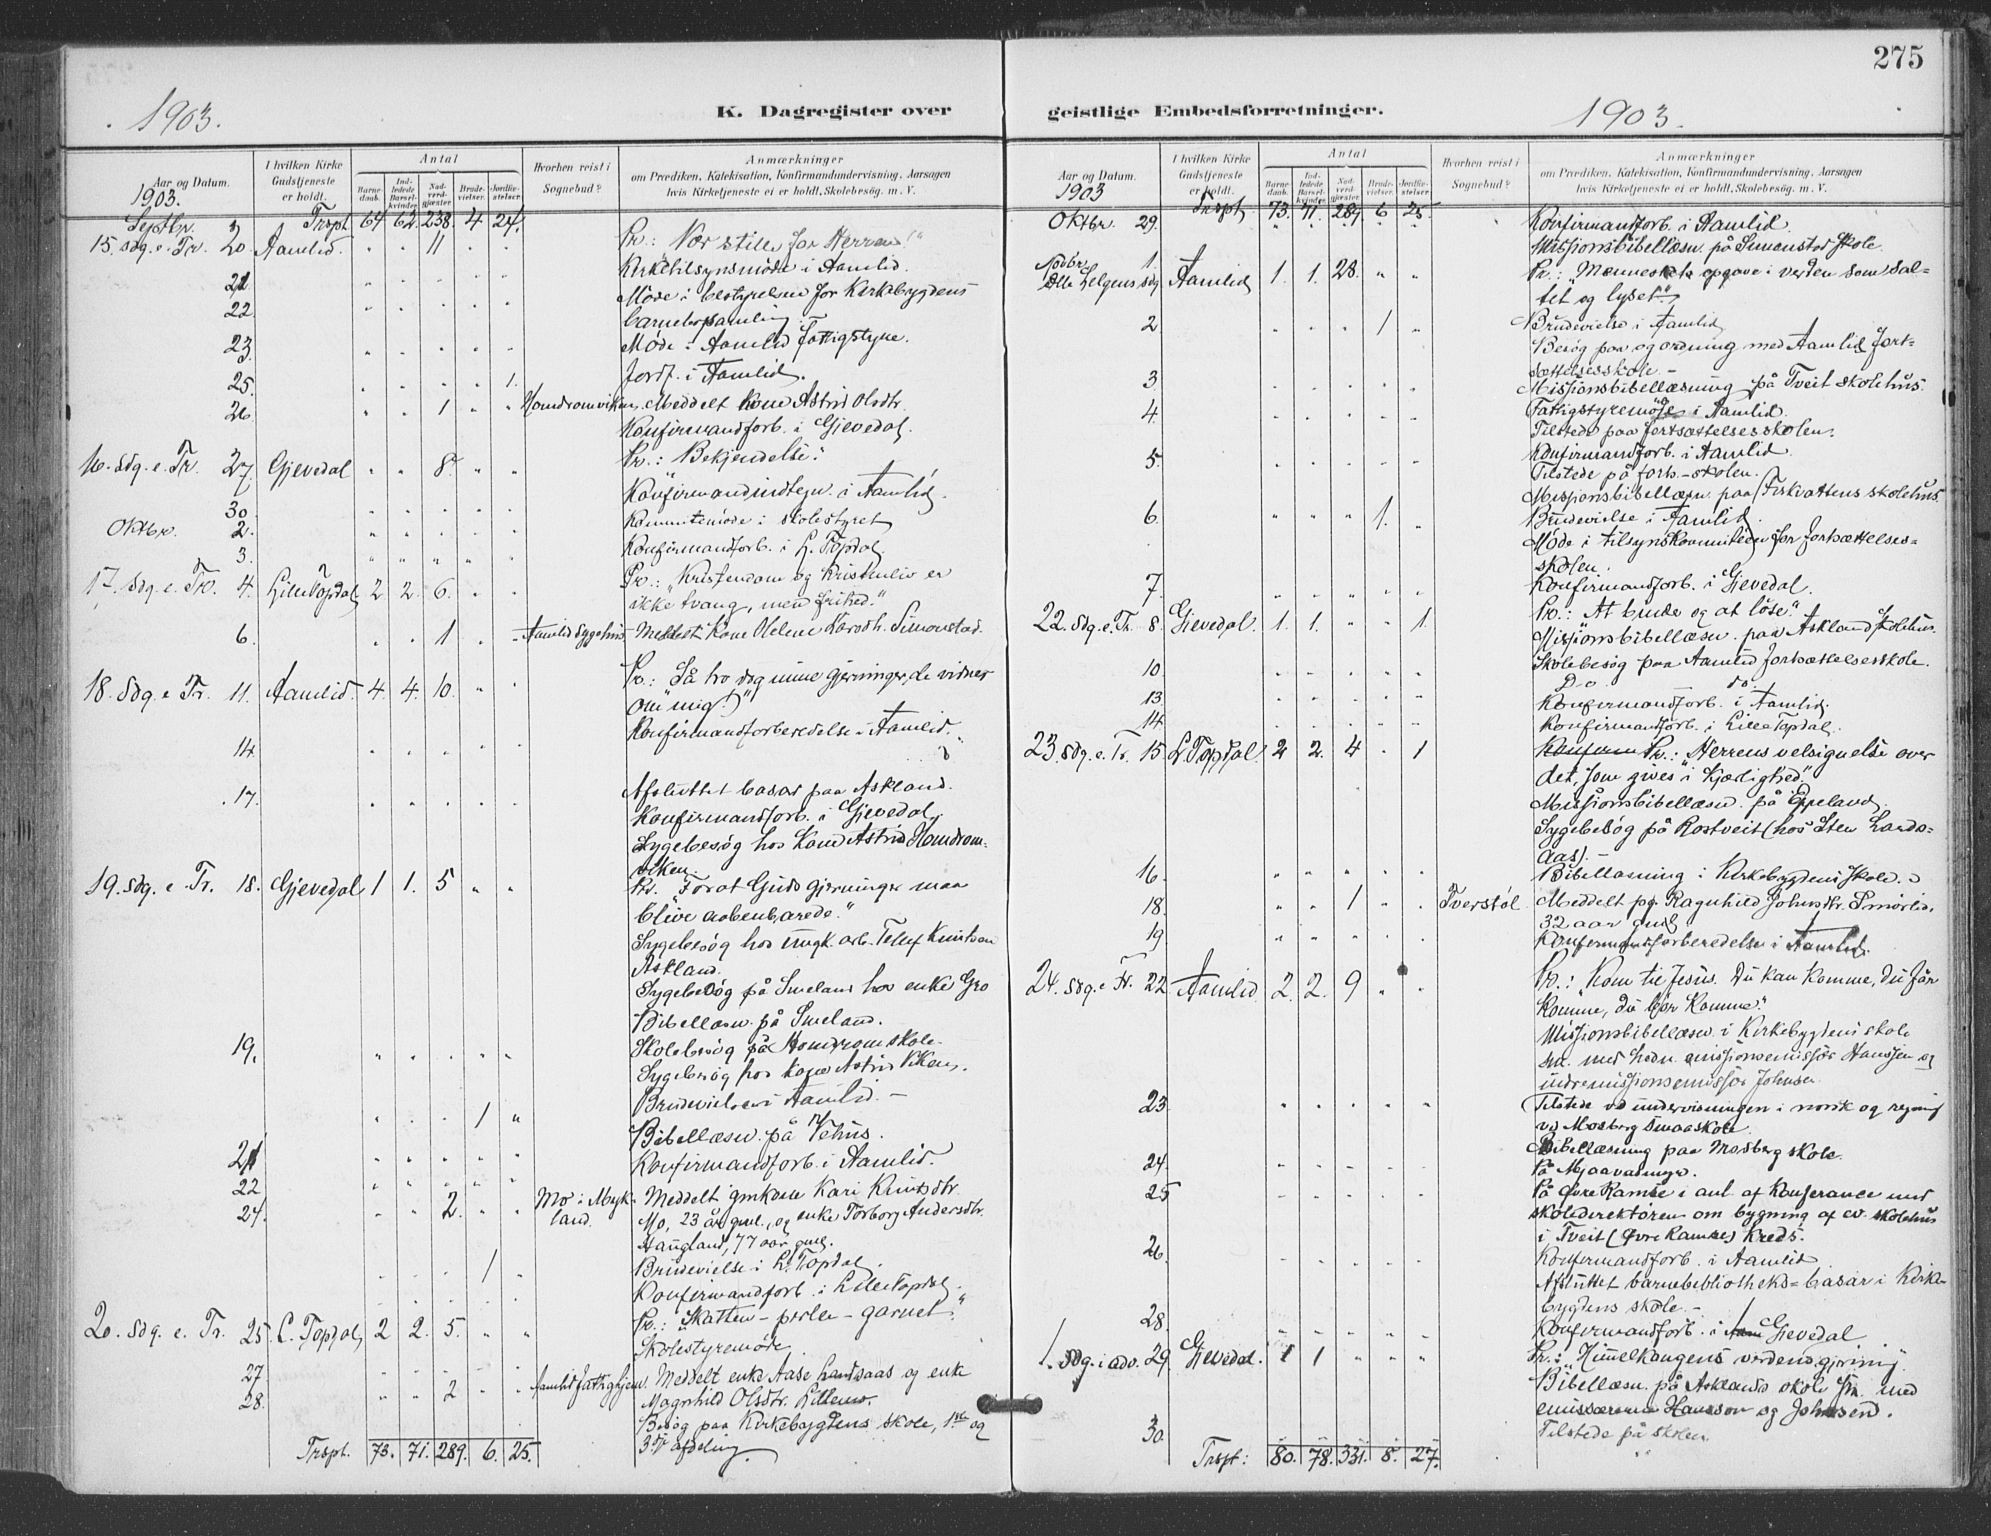 275
1903.
K. Dagregister over
geistlige Embedsforretninger.
1903.
Aar og Datum.
1903.
I hvilken Kirke Gudstjeneste er holdt.
Antal
Barnedaab.
Indledede Barselkvinder.
Nadverdgjæster
Brudevielser.
Jordfæstelser.
Hvorhen reist i Sognebud?
Anmærkninger
om Prædiken, Katekisation, Konfirmandundervisning, Aarsagen
hvis Kirketjeneste ei er holdt, Skolebesøg. m. V.
Septbr. Trspt. 64 62. 238. 4 24.
15. Sdg. e. Tr. 20. Aamlid. 11 Pr.: "Vær stille for Herren!"
Kirketilsynsmøde i Aamlid.
21 Møde i bestyrelsen for Kirkebygdens
22 barnebogsamling.
23 Møde i Aamlid Fattigstyre.
25. Jordf. i Aamlid. 1.
26 1 Homdromviken. Meddelt kone Astrid Olsdtr.
Konfirmandforb. i Gjevedal.
16. Sdg. e. Tr. 27. Gjevedal 8. Pr.: Bekjendelse.
Konfirmandindtegn. i Aamlid.
30.
Oktbr. 2. Kommitemøde i skolestyret
3. Konfirmandforb. i L. Topdal.
17. Sdg. e. Tr. 4. Lille Topdal 2 2. 6. Pr.: "Kristendom og Kristenliv er
ikke tvang, men frihed."
6. 1 Aamlid Sygehus Meddelt Kone Helene Simonstad.
18. Sdg. e. Tr. 11. Aamlid. 4. 4. 10. Pr.: Så tro dog mine gjerninger, de vidner
om mig!"
Konfirmandforberedelse i Aamlid.
14.
17. Afsluttet basar paa Askland.
Konfirmandforb. i Gjevedal.
Sygebesøg hos Kone Astrid Homdrom-
viken.
19. Sdg. e. Tr. 18. Gjevedal 1 1. 5 Pr. "Forat Guds gjerninger maa
blive aabenbarede."
Sygebesøg hos ungk. arb. Tellef Knutsen
Askland.
Sygebesøg på Smeland hos enke Gro
Bibellæsn. på Smeland.
19. Skolebesøg på Homdrom skole.
Sygebesøg hos kone Astrid Viken.
1 Brudevielse i Aamlid. -
Bibellæsn. på Vehus.
21 Konfirmandforb. i Aamlid.
22
24. 2. Mo i Myk- Meddelt gmkone Kari Knutsdtr.
land. Mo, 23 år gml., og enke Torborg Andersdtr.
Haugland, 77 aar gml.
1 Brudevielse i L. Topdal.
Konfirmandforb. i Lille Topdal.
20. Sdg. e. Tr. 25 L. Topdal 2 2. 5. Pr.: "Skatten - perlen - garnet."
Skolestyremøde.
27
28. 2 Aamlid fattighjem. Meddelt enke Aase Landsaas og enke
Magnhild Olsdtr.
Besøg paa Kirkebygdens skole, 1ste og
3die afdeling.
Trspt. 73. 71. 289. 6. 25.
Aar og Datum.
1903
I hvilken Kirke Gudstjeneste er holdt.
Antal
Barnedaab.
Indledede Barselkvinder.
Nadverdgjæster
Brudevielser.
Jordfæstelser.
Hvorhen reist i Sognebud?
Anmærkninger
om Prædiken, Katekisation, Konfirmandundervisning, Aarsagen
hvis Kirketjeneste ei er holdt, Skolebesøg. m. V.
Trspt. 73. 71. 289 6 25.
Oktbr. 29. Konfirmandforb. i Aamlid.
Missionsbibellæsn. på Simonstad Skole.
Novbr. 1.
Alle Helgens sdg Aamlid 1. 1. 28. Pr.: "Menneskets opgave i verden som sal-
tet og lyset".
2 1 Brudevielse i Aamlid
Besøg paa og ordning med Aamlid fort-
sættelsesskole -
3 Missionsbibellæsning på Tveit skolehus.
4. Fattigstyremøde i Aamlid.
Tilstede paa fortsættelsesskolen.
5. Konfirmandforb. i Aamlid
Tilstede på forts.-skolen.
Missionsbibellæsn. paa Fiskvattens skolehus.
6. 1. Brudevielse i Aamlid.
Møde i tilsynskommiteen for fortsættelses-
skolen.
7. Konfirmandforb. i Gjevedal.
22. Sdg. e. Tr. 8. Gjevedal. 1. 1. 1 Pr.: "At binde og at løse".
Missionsbibellæsn. paa Askland Skolehus.
10. Skolebesøg paa Aamlid fortsættelsesskole.
Do. do.
13. Konfirmandforb. i Aamlid.
14. Konfirmandforb. i Lille Topdal.
23. Sdg. e. Tr. 15. L. Topdal. 2 2. 4 1 Konfirm Pr.: "Herrens velsignelse over
det, som gives i Kjærlighed."
Missionsbibellæsn. på Eppeland.
Sygebesøg på Rostveit (hos Sten Lands-
aas). -
16. Bibellæsning i Kirkebygdens Skole.
18. 1 Tverstøl Meddelt pg. Ragnhild Johnsdtr. Smørlid,
32 aar gml
19 Konfirmandforberedelse i Aamlid.
24. Sdg. e. Tr. 22 Aamlid 2. 2. 9 Pr.: "Kom til Jesus. Du kan komme, du får
komme, du bør komme."
Missionsbibellæsn. i Kirkebygdens skole
sm. med hedn. missionsemissær Hanssen og
indremissionsemissær Johnsen.
23. Tilstede ved undervisningen i norsk og regning
ved Mosberg Smaaskole.
24. Bibellæsning paa Mosberg skole.
På Mjaavatn
25 På Øvre Ramse i anl. af Konferance med
skoledirektøren om bygning af skolehus
i Tveit (Øvre Ramse) Kreds.
26. Konfirmandforb. i Aamlid.
Afsluttet barnebiblioteks-basar i Kirke-
bygdens skole. -
28. Konfirmandforb. i Aam Gjevedal
1. Sdg. i adv. 29. Gjevedal. 1 1 Pr.: "Himmelkongens verdensgjerning".
Bibellæsn. på Asklands skole sm. med
emissærerne Hanssen og Johnsen.
30. Tilstede på skolen.
Trspt: 80. 78. 331. 8. 27.